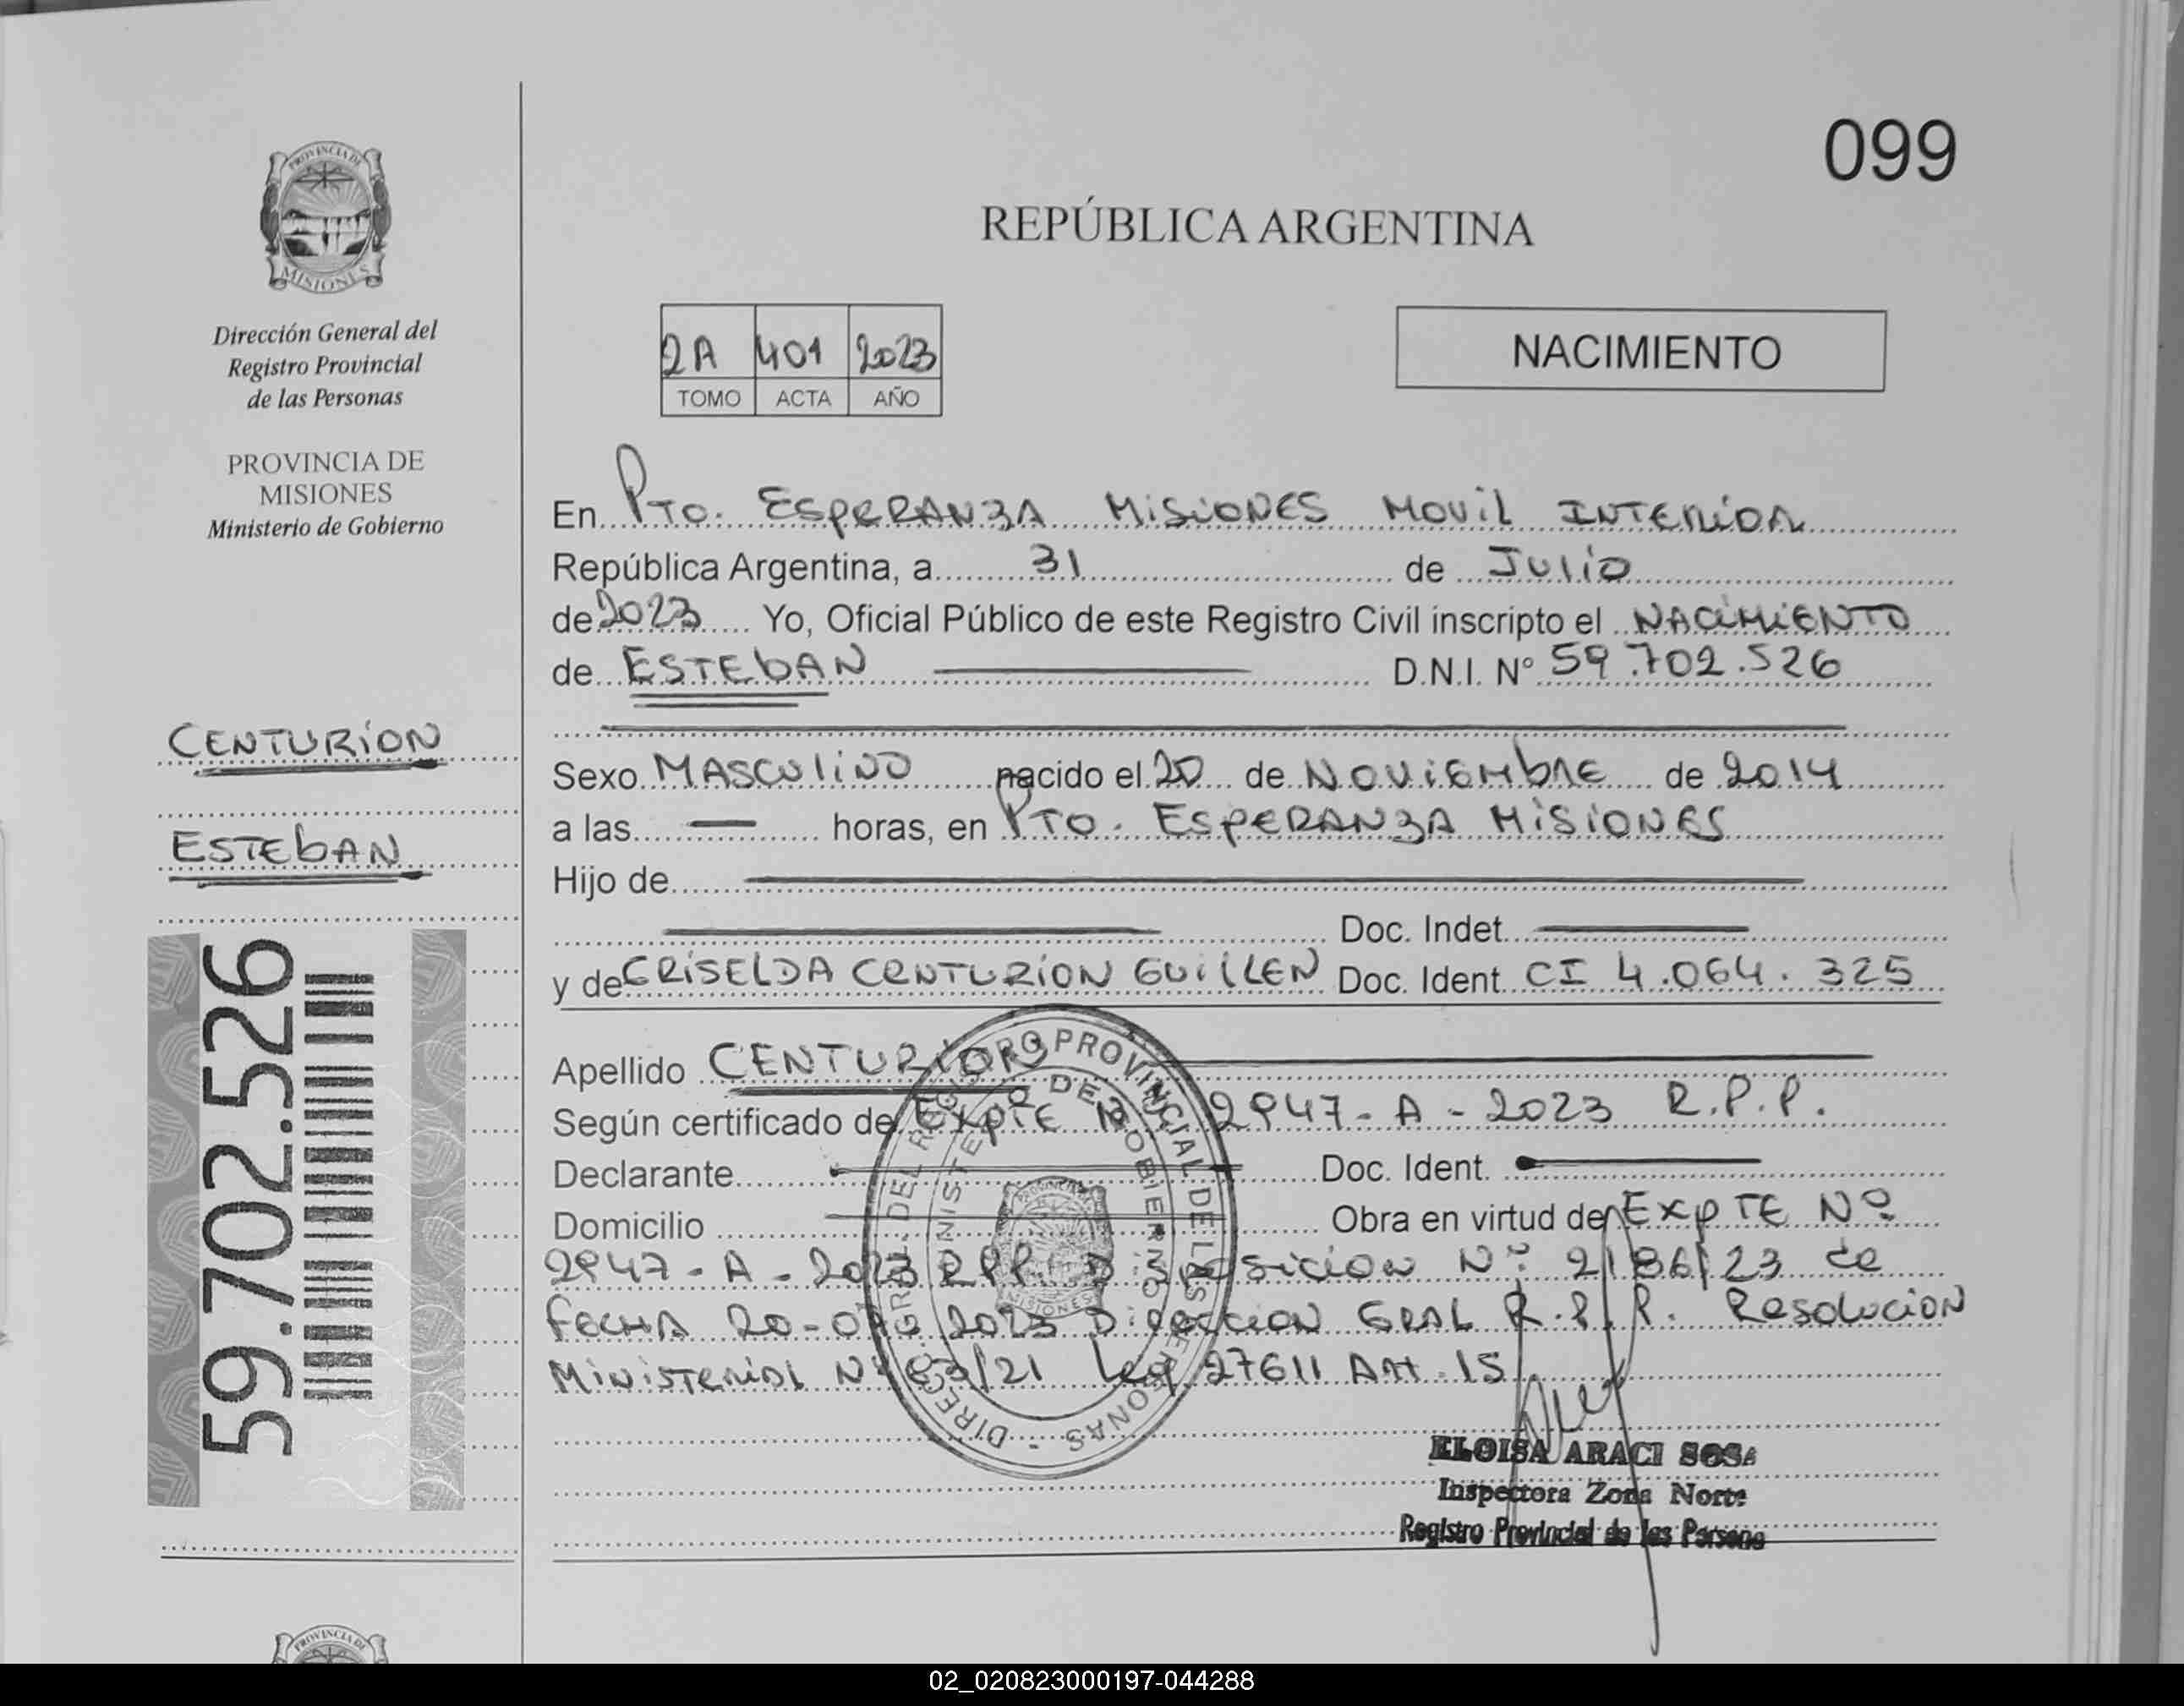 099
REPÚBLICA ARGENTINA
PROVINCIA DE
MISIONES
Dirección General del
Registro Provincial
de las Personas
PROVINCIA DE
MISIONES
Ministerio de Gobierno
2A 401 2023
TOMO ACTA AÑO
NACIMIENTO
En PTO. ESPERANZA MISIONES MOVIL INTERIOR
República Argentina, a 31 de JULIO
de 2023 Yo, Oficial Público de este Registro Civil inscripto el NACIMIENTO
de ESTEBAN D.N.I. Nº 59.702.526
CENTURION
ESTEBAN
59.702.526
Sexo MASCULINO nacido el 20 de NOVIEMBRE de 2014
a las — horas, en PTO. ESPERANZA MISIONES
Hijo de
Doc. Indet.
y de GRISELDA CENTURION GUILLEN Doc. Ident. CI 4.064.325
Apellido CENTURION
Según certificado de EXPTE Nº 2947-A-2023 R.P.P.
Declarante Doc. Ident.
Domicilio Obra en virtud de EXPTE Nº
2947-A-2023 RPP. DISPOSICION Nº 2186/23 de
FECHA 20- 2023 DIRECCION GRAL R.P.P. Resolucion
Ministerial Nº /21 Ley 27611 Art. 15
DIREC. GRAL. DEL REGISTRO PROVINCIAL DE LAS PERSONAS -
MINISTERIO DE GOBIERNO
PROVINCIA DE
MISIONES
ELOISA ARACI SOSA
Inspectora Zona Norte
Registro Provincial de las Persona
PROVINCIA DE
02_020823000197-044288